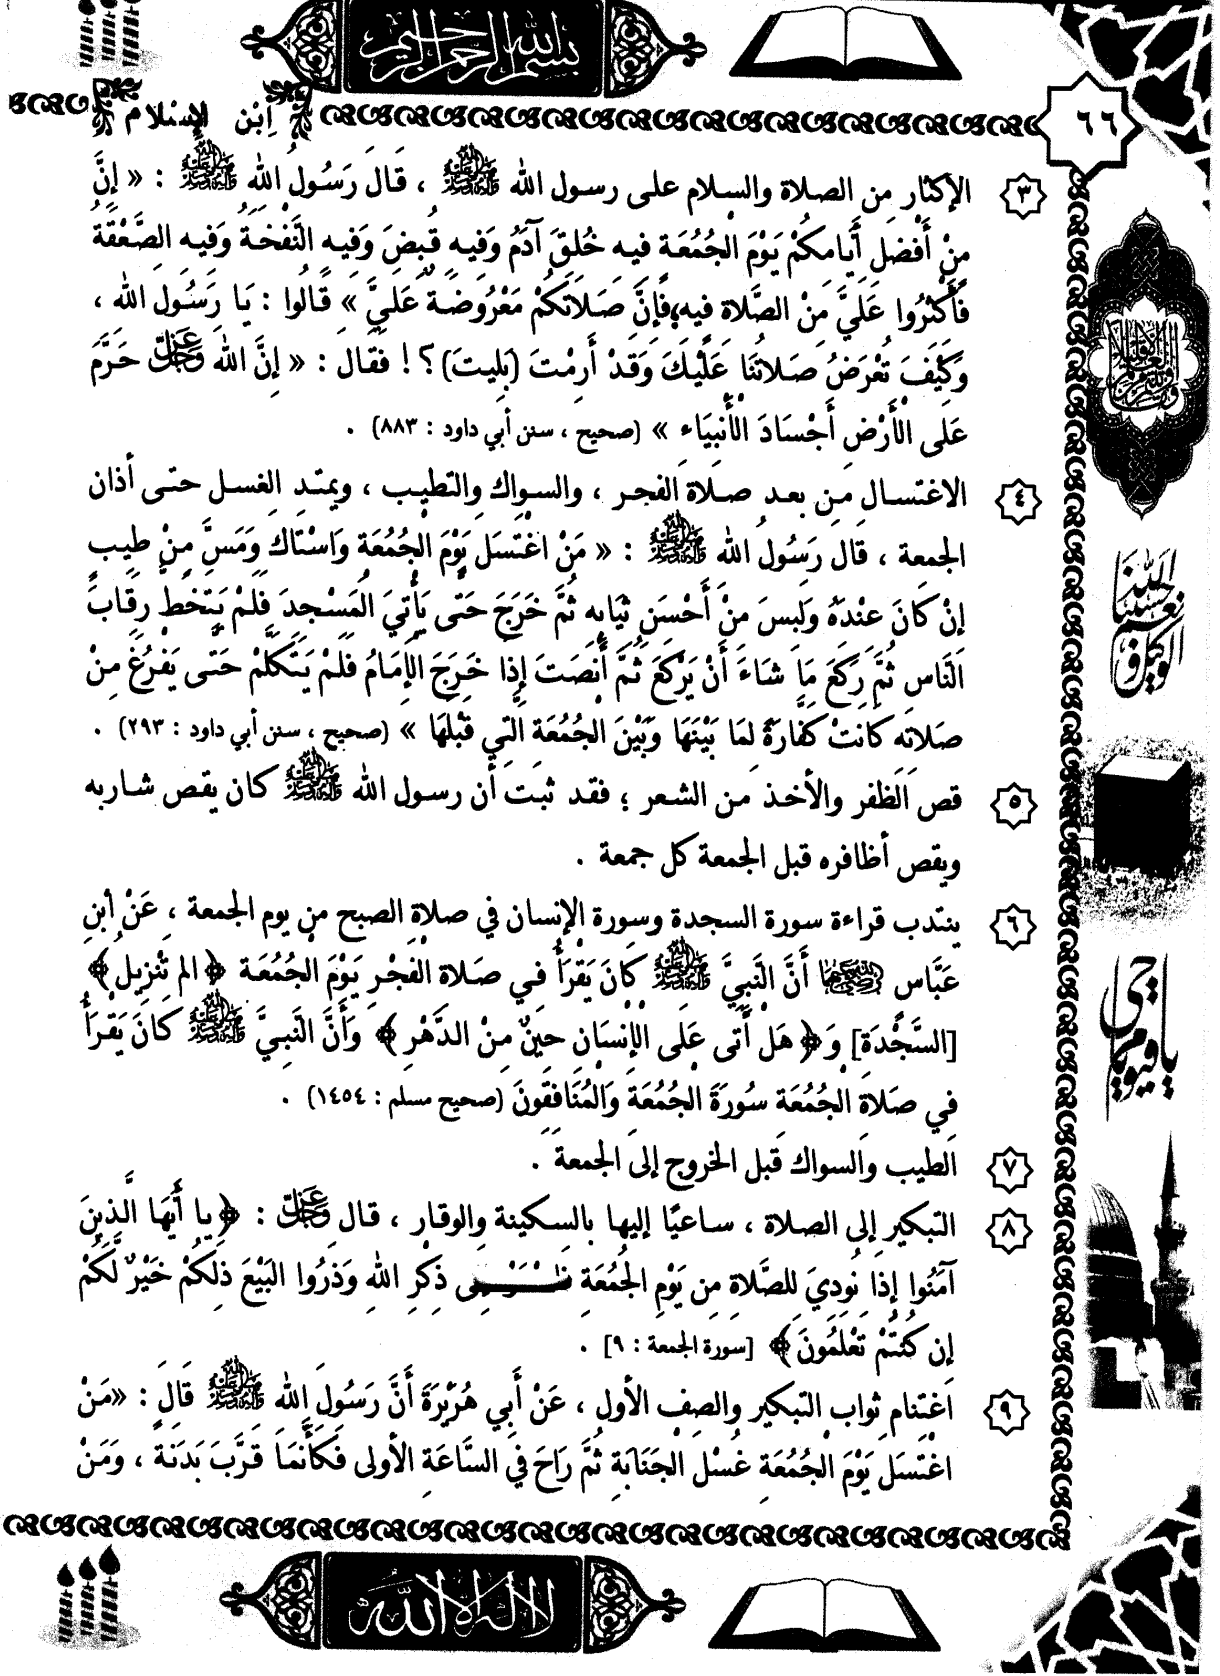 بسم الله الرحمن الرحيم
٦٦
ابْن الإسْلام
٣ الإكثار من الصلاة والسلام على رسول الله ﷺ ، قَالَ رَسُولُ اللهِ ﷺ : « إنَّ
مِنْ أَفْضَلِ أَيَّامِكُمْ يَوْمَ الْجُمُعَةِ فِيهِ خُلِقَ آدَمُ وَفِيهِ قُبِضَ وَفِيهِ النَّفْخَةُ وَفِيهِ الصَّعْقَةُ
فَأَكْثِرُوا عَلَيَّ مِنْ الصَّلاةِ فِيهِ؛فَإِنَّ صَلاتَكُمْ مَعْرُوضَةٌ عَلَيَّ » قَالُوا : يَا رَسُولَ اللهِ ،
وَكَيْفَ تُعْرَضُ صَلاتُنَا عَلَيْكَ وَقَدْ أَرِمْتَ (بَلِيتَ) ؟ ! فقَالَ : « إِنَّ اللهَ عَزَّ وَجَلَّ حَرَّمَ
عَلَى الْأَرْضِ أَجْسَادَ الْأَنْبِيَاءِ » (صحيح ، سنن أبي داود : ٨٨٣) .
٤ الاغتسال من بعد صلاة الفجر ، والسواك والتطيب ، ويمتد الغسل حتى أذان
الجمعة ، قَالَ رَسُولُ اللهِ ﷺ : « مَنْ اغْتَسَلَ يَوْمَ الْجُمُعَةِ وَاسْتَاكَ وَمَسَّ مِنْ طِيبٍ
إِنْ كَانَ عِنْدَهُ وَلَبِسَ مِنْ أَحْسَنِ ثِيَابِهِ ثُمَّ خَرَجَ حَتَّى يَأْتِيَ الْمَسْجِدَ فَلَمْ يَتَخَطَّ رِقَابَ
النَّاسِ ثُمَّ رَكَعَ مَا شَاءَ أَنْ يَرْكَعَ ثُمَّ أَنْصَتَ إِذَا خَرَجَ الإِمَامُ فَلَمْ يَتَكَلَّمْ حَتَّى يَفْرُغَ مِنْ
صَلاتِهِ كَانَتْ كَفَّارَةً لِمَا بَيْنَهَا وَبَيْنَ الْجُمُعَةِ الَّتِي قَبْلَهَا » (صحيح ، سنن أبي داود : ٢٩٣) .
٥ قص الظفر والأخذ من الشعر ؛ فقد ثبت أن رسول الله ﷺ كان يقص شاربه
ويقص أظافره قبل الجمعة كل جمعة .
٦ ينتدب قراءة سورة السجدة وسورة الإنسان في صلاة الصبح من يوم الجمعة ، عَنْ ابْنِ
عَبَّاسٍ رضي الله عنهما أَنَّ النَّبِيَّ ﷺ كَانَ يَقْرَأُ فِي صَلاةِ الفَجْرِ يَوْمَ الجُمُعَةِ ﴿ الم تَنْزِيلُ ﴾
[السَّجْدَةِ] وَ﴿ هَلْ أَتَى عَلَى الإنْسَانِ حِينٌ مِنْ الدَّهْرِ ﴾ وَأَنَّ النَّبِيَّ ﷺ كَانَ يَقْرَأُ
فِي صَلاةِ الجُمُعَةِ سُورَةَ الجُمُعَةِ وَالمُنَافِقُونَ (صحيح مسلم : ١٤٥٤) .
٧ الطيب والسواك قبل الخروج إلى الجمعة .
٨ التبكير إلى الصلاة ، ساعيًا إليها بالسكينة والوقار ، قال عَزَّ وَجَلَّ : ﴿ يا أَيُّهَا الَّذِينَ
آمَنُوا إِذَا نُودِيَ لِلصَّلاةِ مِن يَوْمِ الجُمُعَةِ ذِكْرِ اللهِ وَذَرُوا البَيْعَ ذَلِكُمْ خَيْرٌ لَّكُمْ
إِن كُنتُمْ تَعْلَمُونَ ﴾ [سورة الجمعة : ٩] .
٩ اغتنام ثواب التبكير والصف الأول ، عَنْ أَبِي هُرَيْرَةَ أَنَّ رَسُولَ اللهِ ﷺ قَالَ : «مَنْ
اغْتَسَلَ يَوْمَ الْجُمُعَةِ غُسْلَ الجَنَابَةِ ثُمَّ رَاحَ فِي السَّاعَةِ الأُولَى فَكَأَنَّمَا قَرَّبَ بَدَنَةً ، وَمَنْ
حسبنا الله ونعم الوكيل
يا حي يا قيوم
لا إله إلا الله